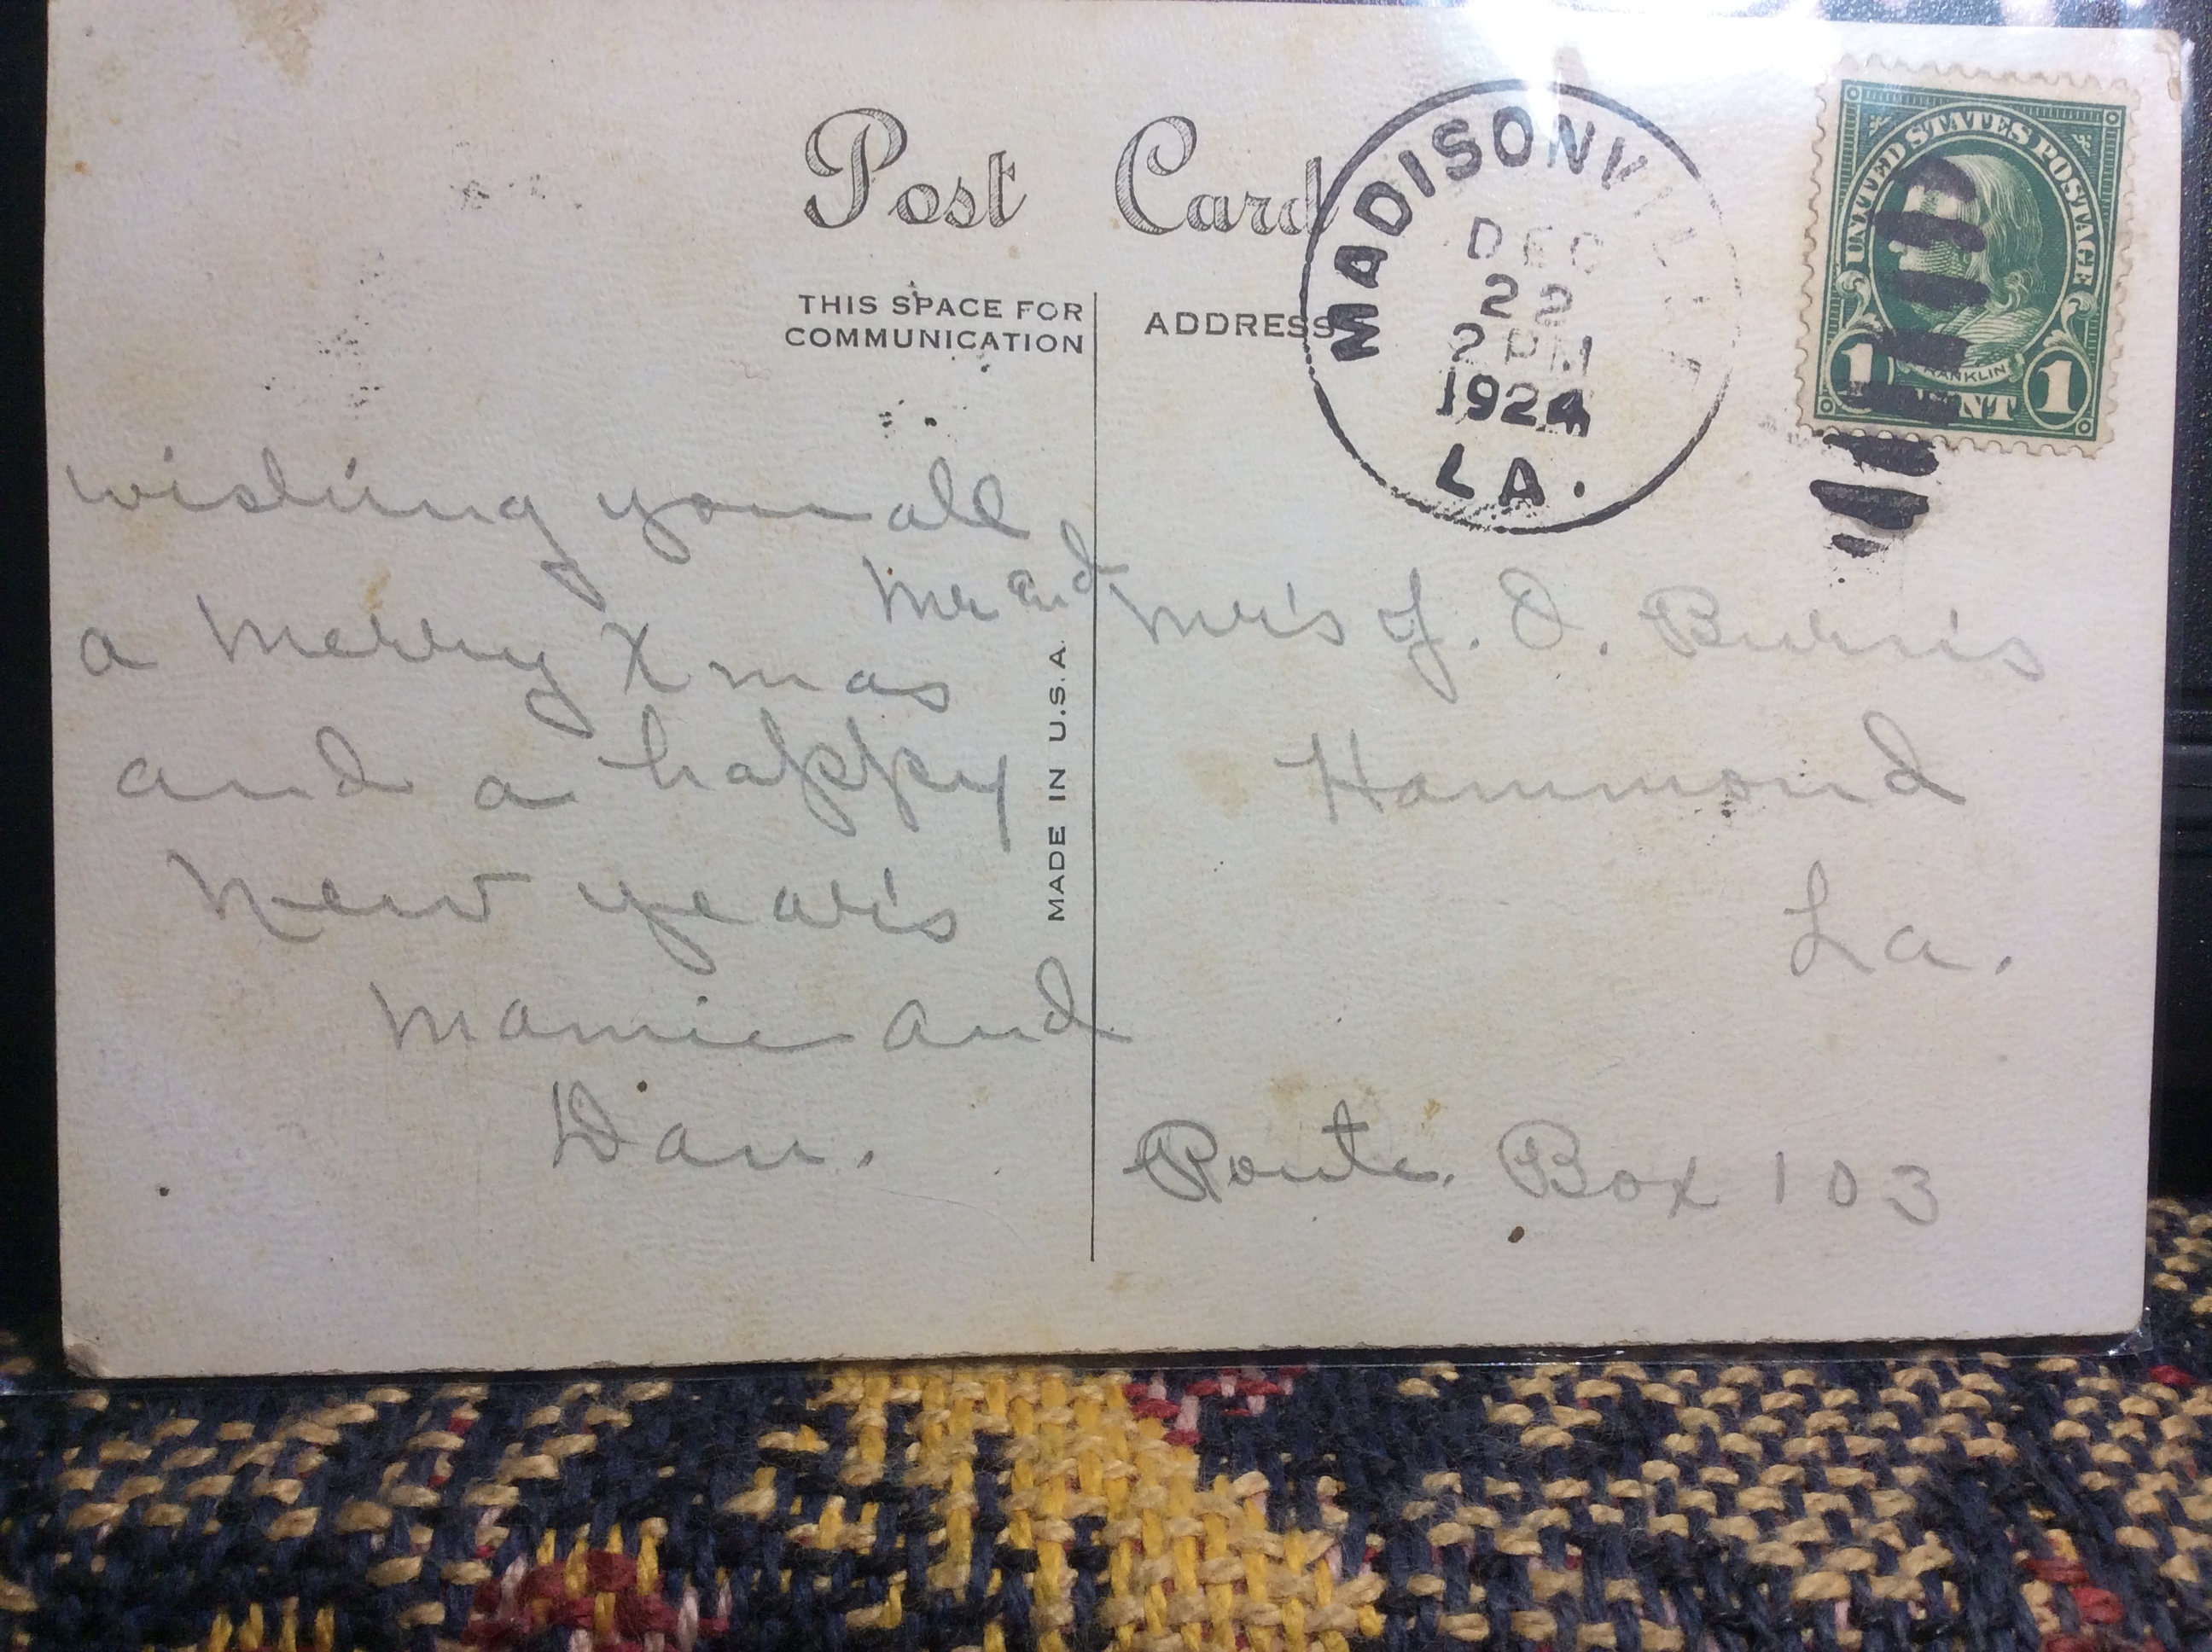 Post Card
THIS SPACE FOR
COMMUNICATION
ADDRESS
MADISONVILLE
DEC
22
2 PM
1924
LA.
UNITED STATES POSTAGE
FRANKLIN
1 CENT 1
wishing you all
a Merry Xmas
and a happy
New year's
Mamie and
Dan.
MADE IN U.S.A.
Mr and Mr's J. O. Burn's
Hammond
La.
Route. Box 103